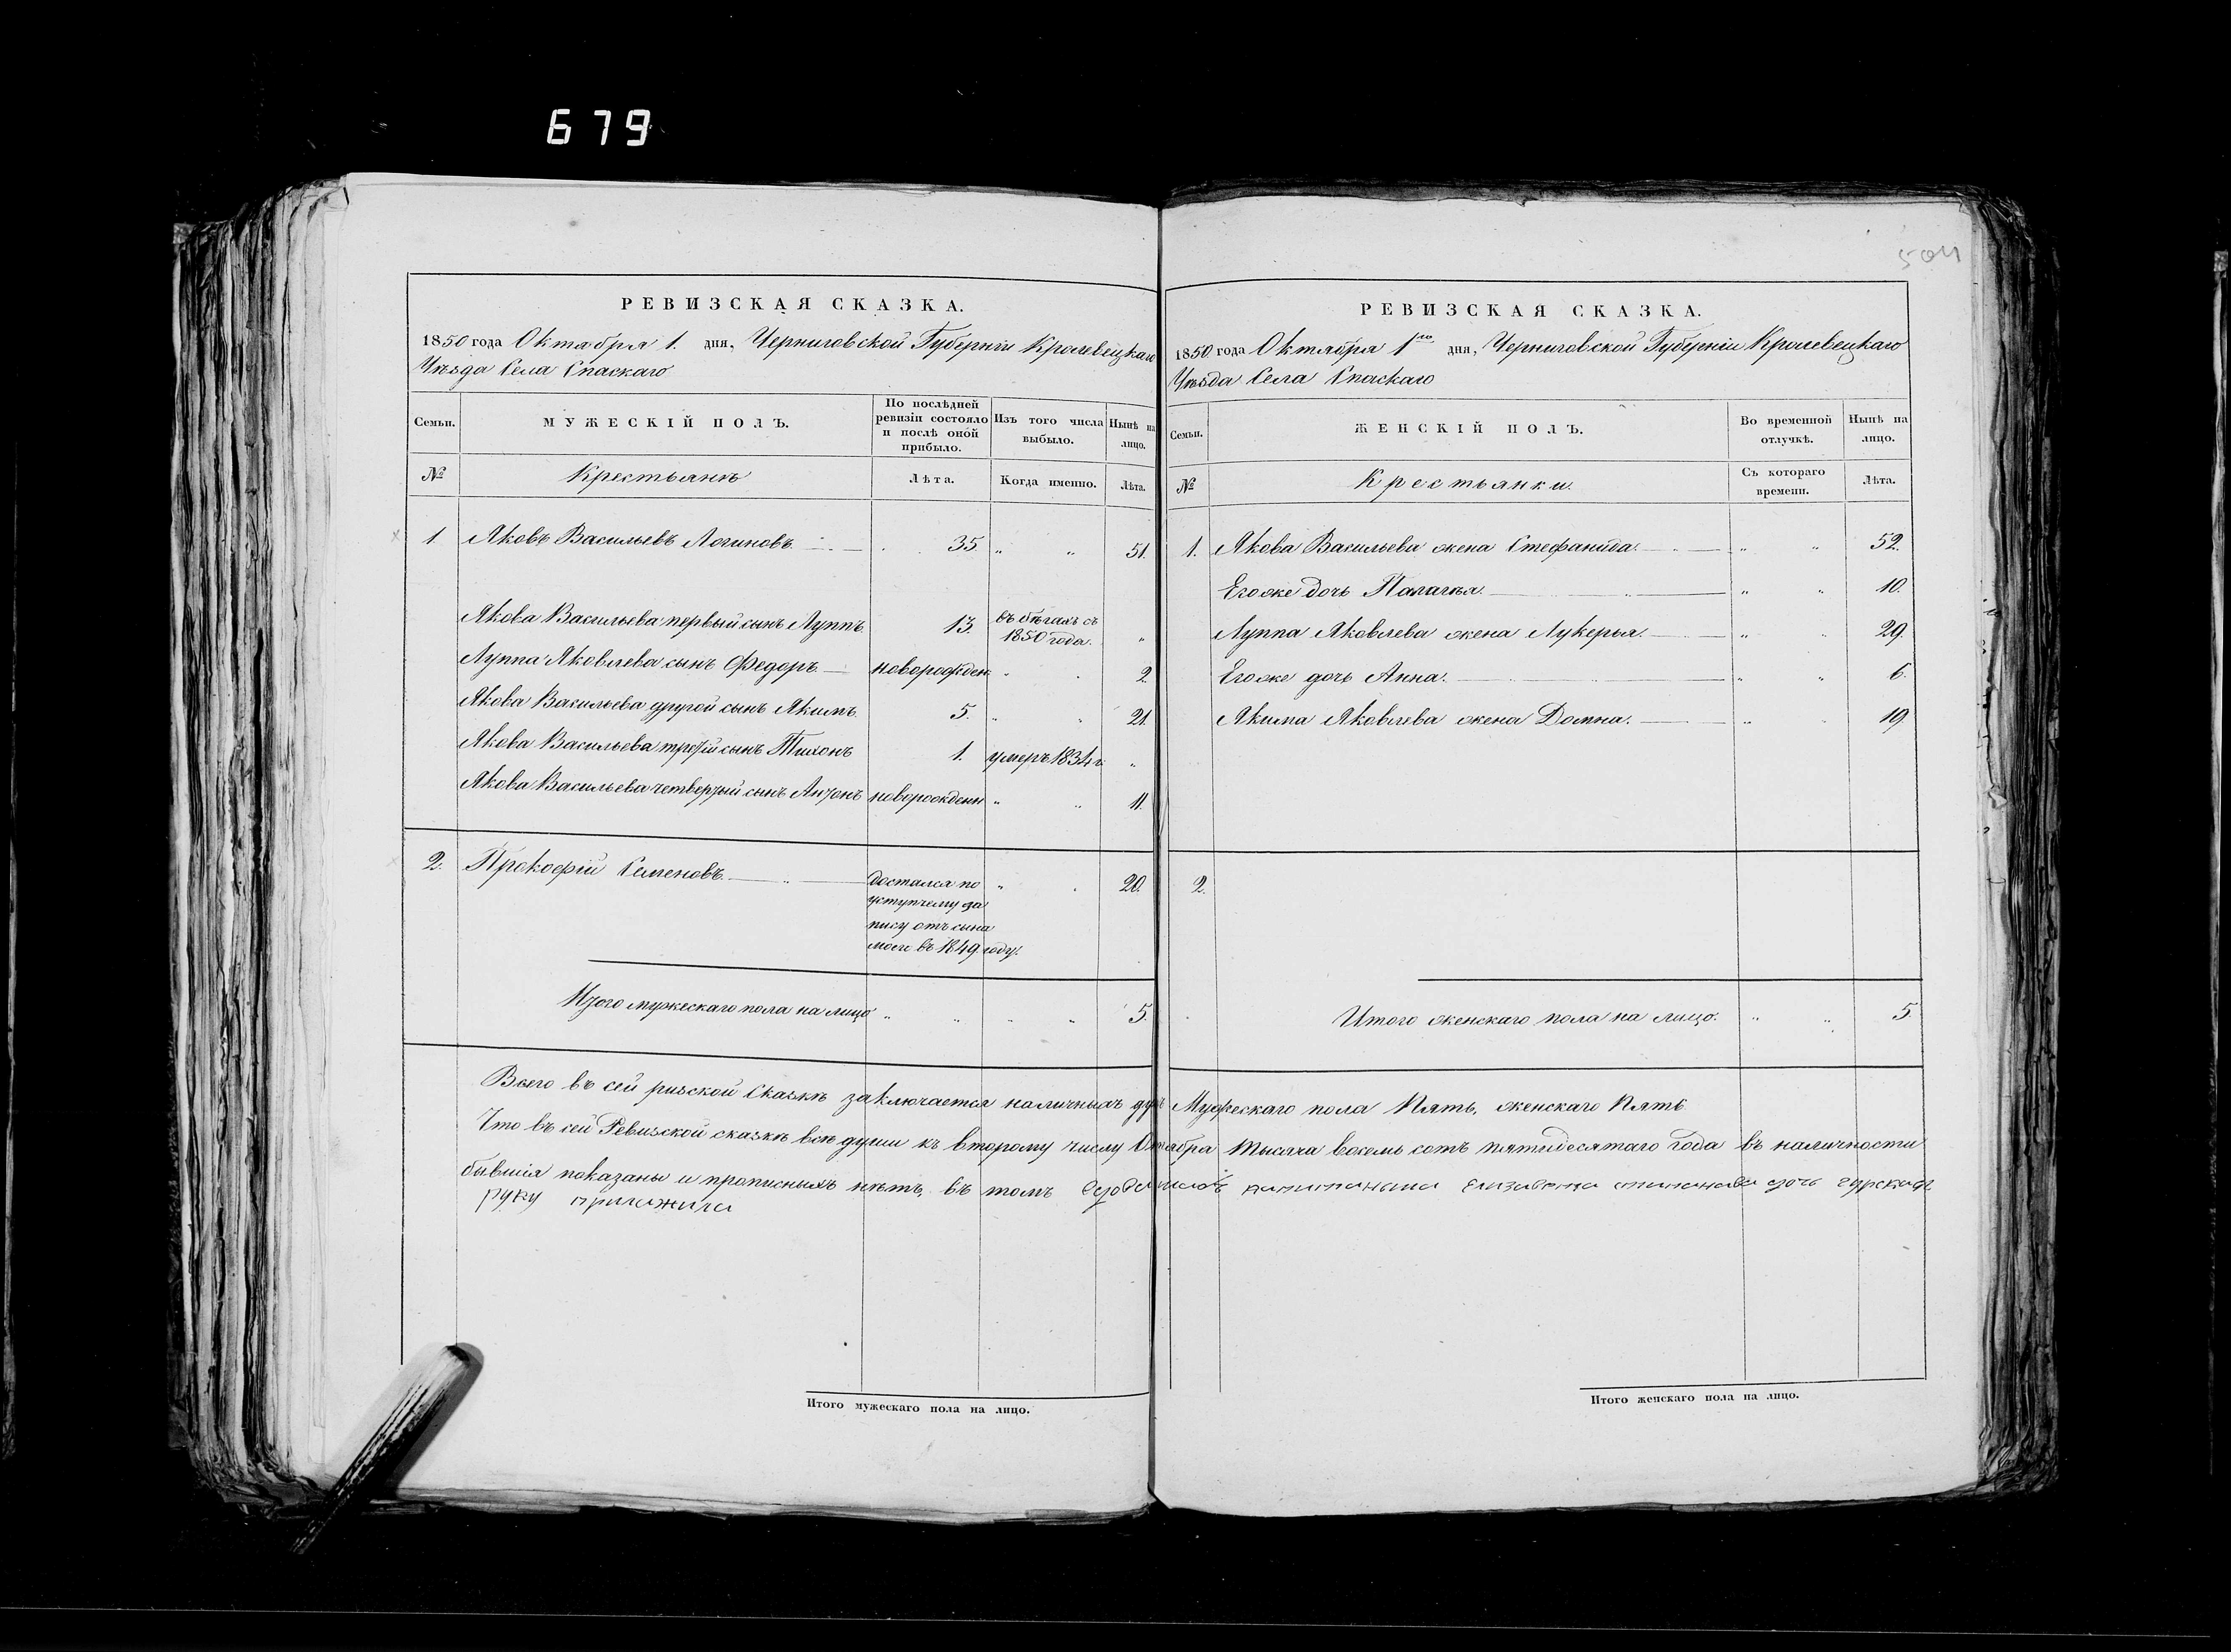 679
504
РЕВИЗСКАЯ СКАЗКА.
1850 года Октября 1. дня, Черниговской Губерніи Кролевецкаго
Уѣзда Села Спаскаго
Семьи. МУЖЕСКІЙ ПОЛЪ. По послѣдней ревизіи состояло и послѣ оной прибыло. Изъ того числа выбыло. Нынѣ на лицо.
№ Крестьянъ Лѣта. Когда именно. Лѣта.
1 Яковъ Васильевъ Логиновъ. 35 " " 51.
Якова Васильева первый сынъ Луппъ. 13. въ бѣгахъ съ 1850 года. "
Луппа Яковлева сынъ Федоръ новорожден " " 2.
Якова Васильева другой сынъ Якимъ. 5. " " 21.
Якова Васильева третій сынъ Тихонъ 1. умеръ 1834 г. "
Якова Васильева четвертый сынъ Антонъ новорожденн " " 11.
2. Прокофій Семеновъ. достался по " " 20.
уступчему за
пису отъ сына
моего въ 1849 году.
Итого мужескаго пола на лицо " " " " 5.
РЕВИЗСКАЯ СКАЗКА.
1850 года Октября 1го дня, Черниговской Губерніи Кролевецкаго
Уѣзда Села Спаскаго
Семьи. ЖЕНСКІЙ ПОЛЪ. Во временной отлучкѣ. Нынѣ на лицо.
№ Крестьянки. Съ котораго времени. Лѣта.
1. Якова Васильева жена Стефанида. " " 52.
Его же дочь Палагѣя. " " 10.
Луппа Яковлева жена Лукерья. " " 29.
Его же дочь Анна. " " 6.
Якима Яковлева жена Домна. " " 19
2.
Итого женскаго пола на лицо. " " 5.
Всего въ сей ризской Сказкѣ заключается наличныхъ душъ Мужескаго пола Пять, женскаго Пять
Что въ сей Ревизской сказкѣ всѣ души къ второму числу Октября тысяча восемь сотъ пятидесятаго года въ наличности
бывшія показаны и прописныхъ нѣтъ, въ томъ Елизавета дочь
руку приложила
Итого мужескаго пола на лицо.
Итого женскаго пола на лицо.